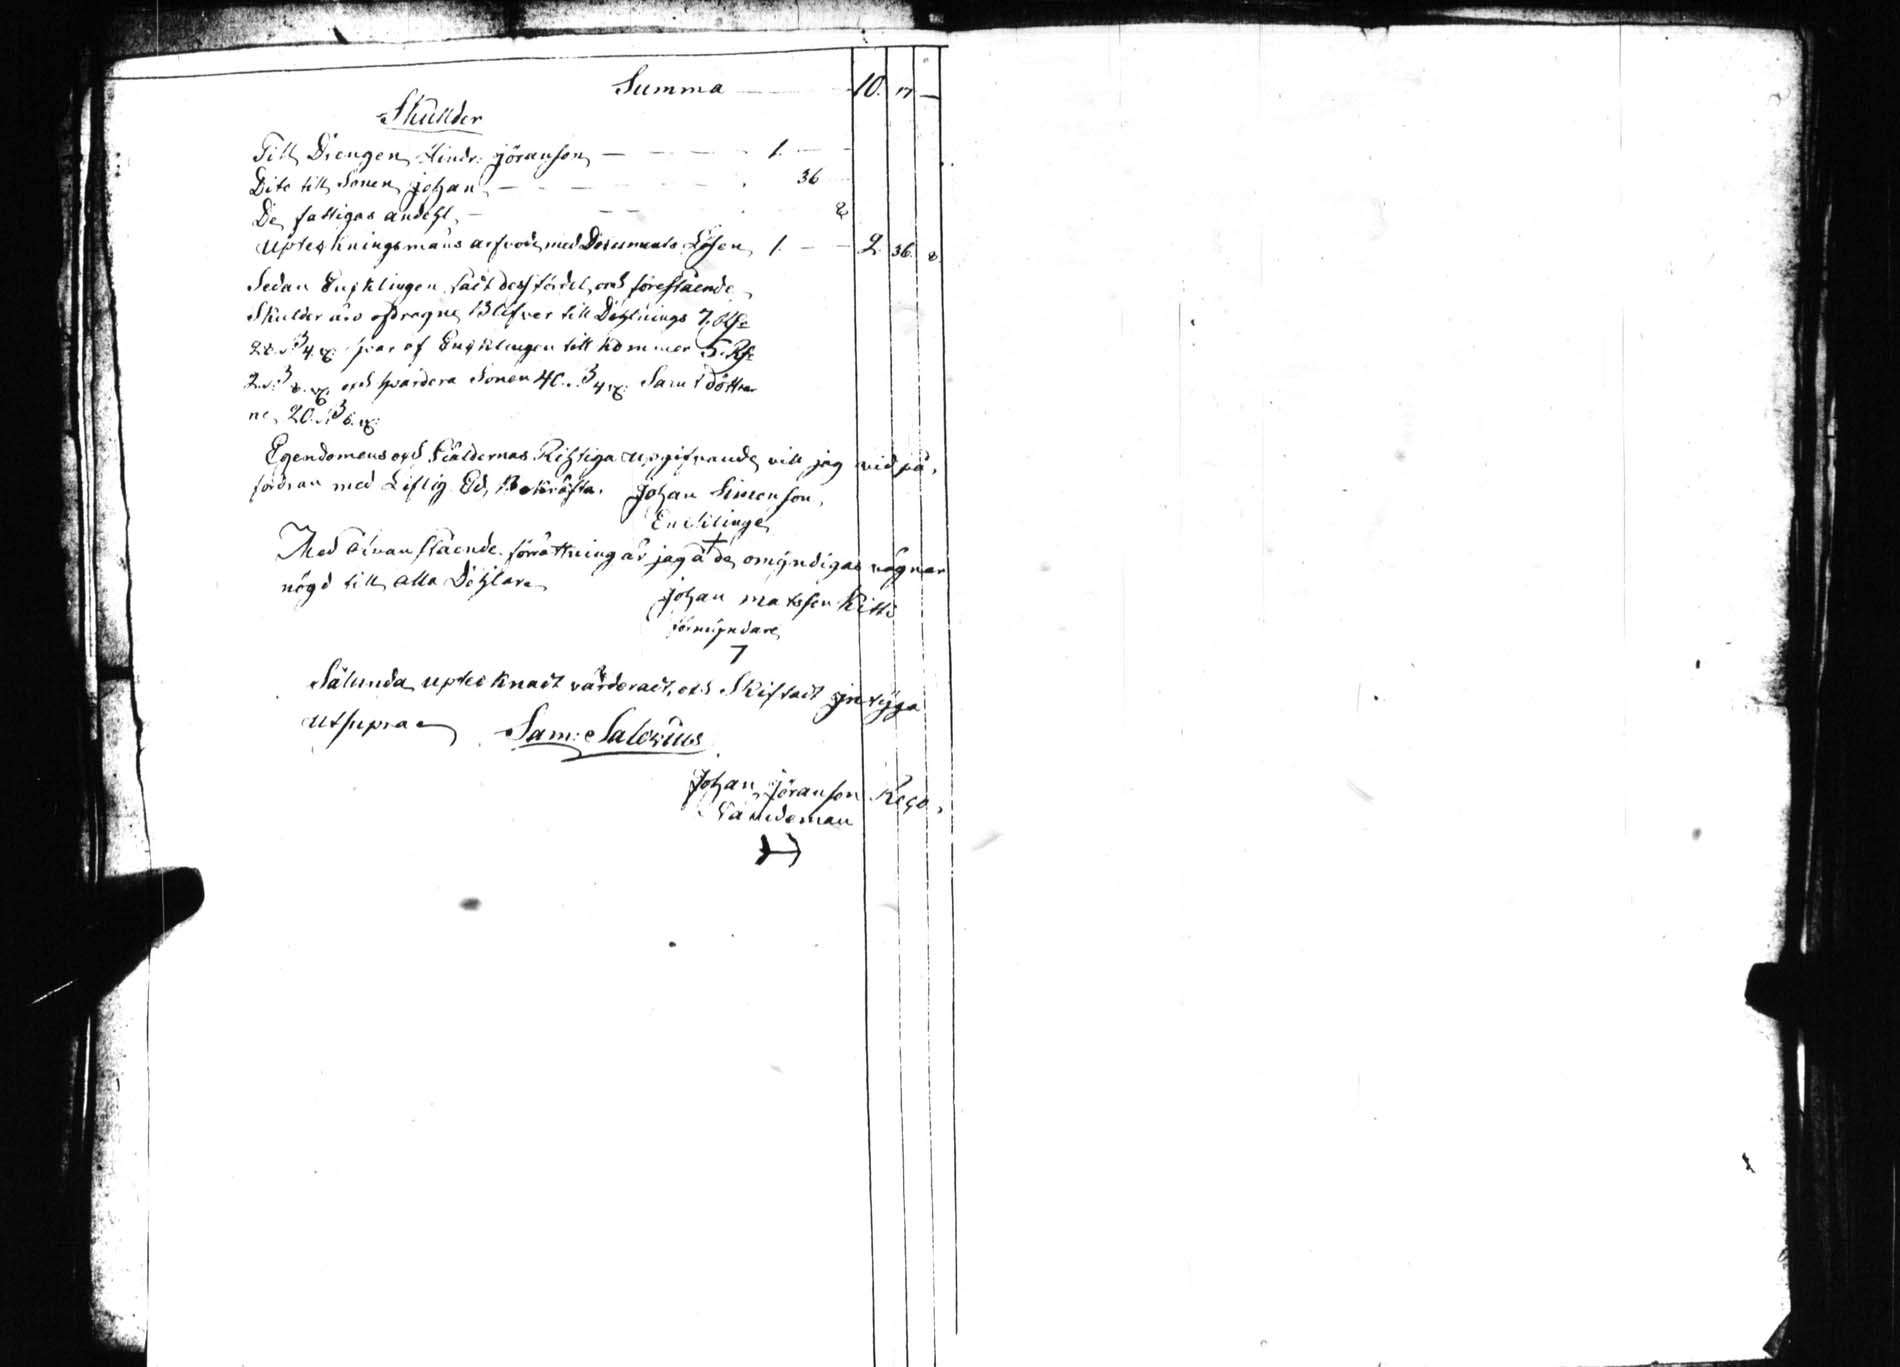 Summa 10. 17 —
Skulder
Till Drengen Hindr: Jöranson — 1. — —
Dito till Sonen Johan — 36 —
De fattigas andehl — 8
Upteckningsmans arfvode med Documents Lösen 1. — — 2. 36. 8
Sedan Enklingen fådt dess fördel och förestående
Skulder äro afdragne Blifver till Dehlnings 7. Rdr
28. s. 4. hvar af Enklingen till kommer 5. Rdr
2. s. 8. och hvardera Sonen 40. s. 4. Samt döttrar
ne 20. s. 6.
Egendomens och Giäldernas Rihtiga upgifvande vill jag vid på-
fordran med Liflig Ed Bekräfta. Johan Simonson
Enklinge
+
Med ofvanstående förrättning är jag å de omyndigas vägnar
nögd till alla Dehlar
Johan Matsson Kitti
förmyndare
7
Sålunda uptecknadt värderadt, och Skiftadt intyga
Utsupra Sam: Salovius
Johan Jöranson
Nämdeman